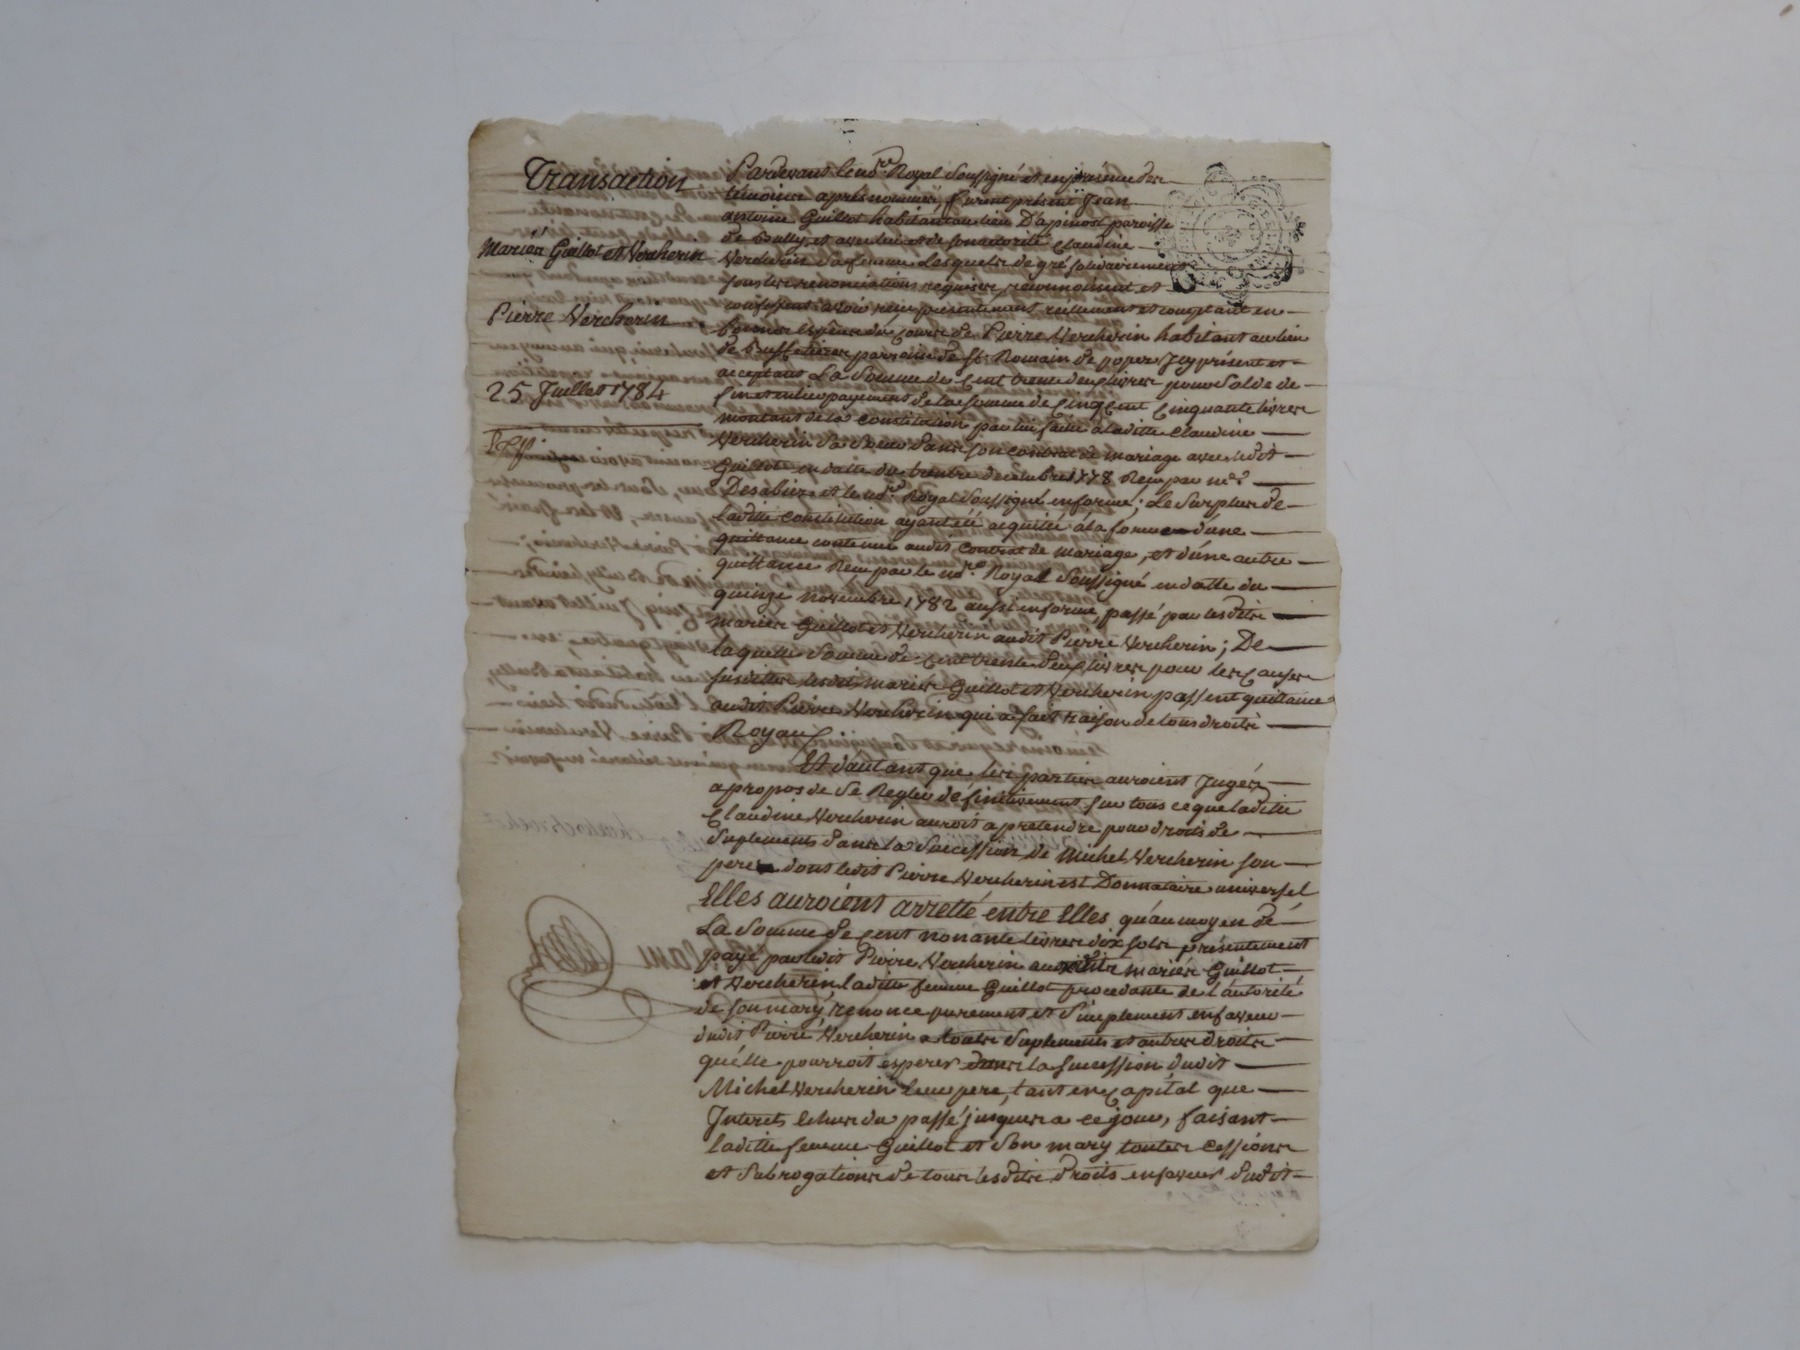 Transaction
Mariés Guillot et Vercherin
Pierre Vercherin
25 Juillet 1784
Pardevant le no.re Royal Soussigné et en présence des
témoins après nommés, furent présent Jean
antoine Guillot habitant au lieu D'apinost paroisse
de Bully, et avec lui et de son autorité Claudine
Vercherin sa femme, Lesquels de gré solidairement
sous les renonciations requises, reconnoissent et
confessent avoir reçu présentement réellement et comptant en
bonnes espèces du cours de Pierre Vercherin habitant au lieu
de paroisse de St. Romain de popes Icy présent et
acceptant La Somme de Cent trente deux livres pour Solde de
fin et entier payement de la somme de Cinq Cent Cinquante livres
montant de la constitution par lui faite à laditte Claudine
Vercherin Sa Soeur dans son contrat de mariage avec ledit
Guillot en datte du trente décembre 1778 Reçu par me.
et le no.re Royal Soussigné en forme; Le Surplus de
laditte constitution ayant été acquitté à la forme d'une
quittance contenue audit Contrat de mariage, et d'une autre
quittance Reçue par le no.re Royal Soussigné en datte du
quinze novembre 1782 aussi en forme, passé par lesdits
mariés Guillot et Vercherin audit Pierre Vercherin; De
laquelle Somme de Cent trente deux livres pour les Causes
susdittes, lesdits mariés Guillot et Vercherin passent quittance
audit Pierre Vercherin qui a fait raison de tous droits
Royaux.
Et d'autant que les parties auroient Jugés
a propos de Se Regler définitivement sur tous ce que laditte
Claudine Vercherin auroit a prétendre pour droits de
Suplements dans la Succession de Michel Vercherin son
pere dont ledit Pierre Vercherin est Donnataire universel
Elles auroient arretté entre Elles qu'au moyen de
La Somme de Cent nonante livres dix sols présentement
payé par ledit Pierre Vercherin auxdits mariés Guillot
et Vercherin, laditte femme Guillot procedante de l'autorité
de son mary, renonce purement et Simplement en faveur
dudit Pierre Vercherin a toutes Suplements et autres droits
qu'elle pourroit esperer dans la Succession dudit
Michel Vercherin leur pere, tant en Capital que
Interets échus du passé jusques a ce jour, faisant
laditte femme Guillot et Son mary toutes cessions
et Subrogations de tous lesdits droits en faveur dudit